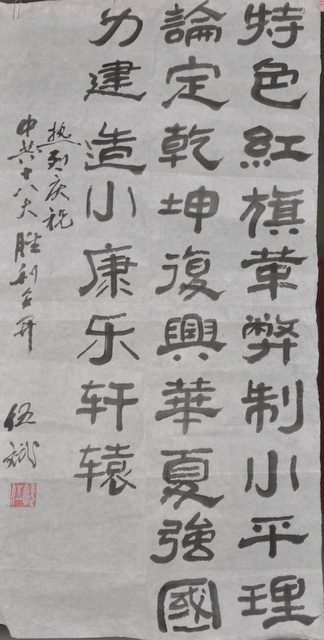 特色红旗革弊制小平理
論定乾坤復興華夏強國
力建造小康乐轩辕
热烈庆祝
中共十八大胜利召开
伍斌